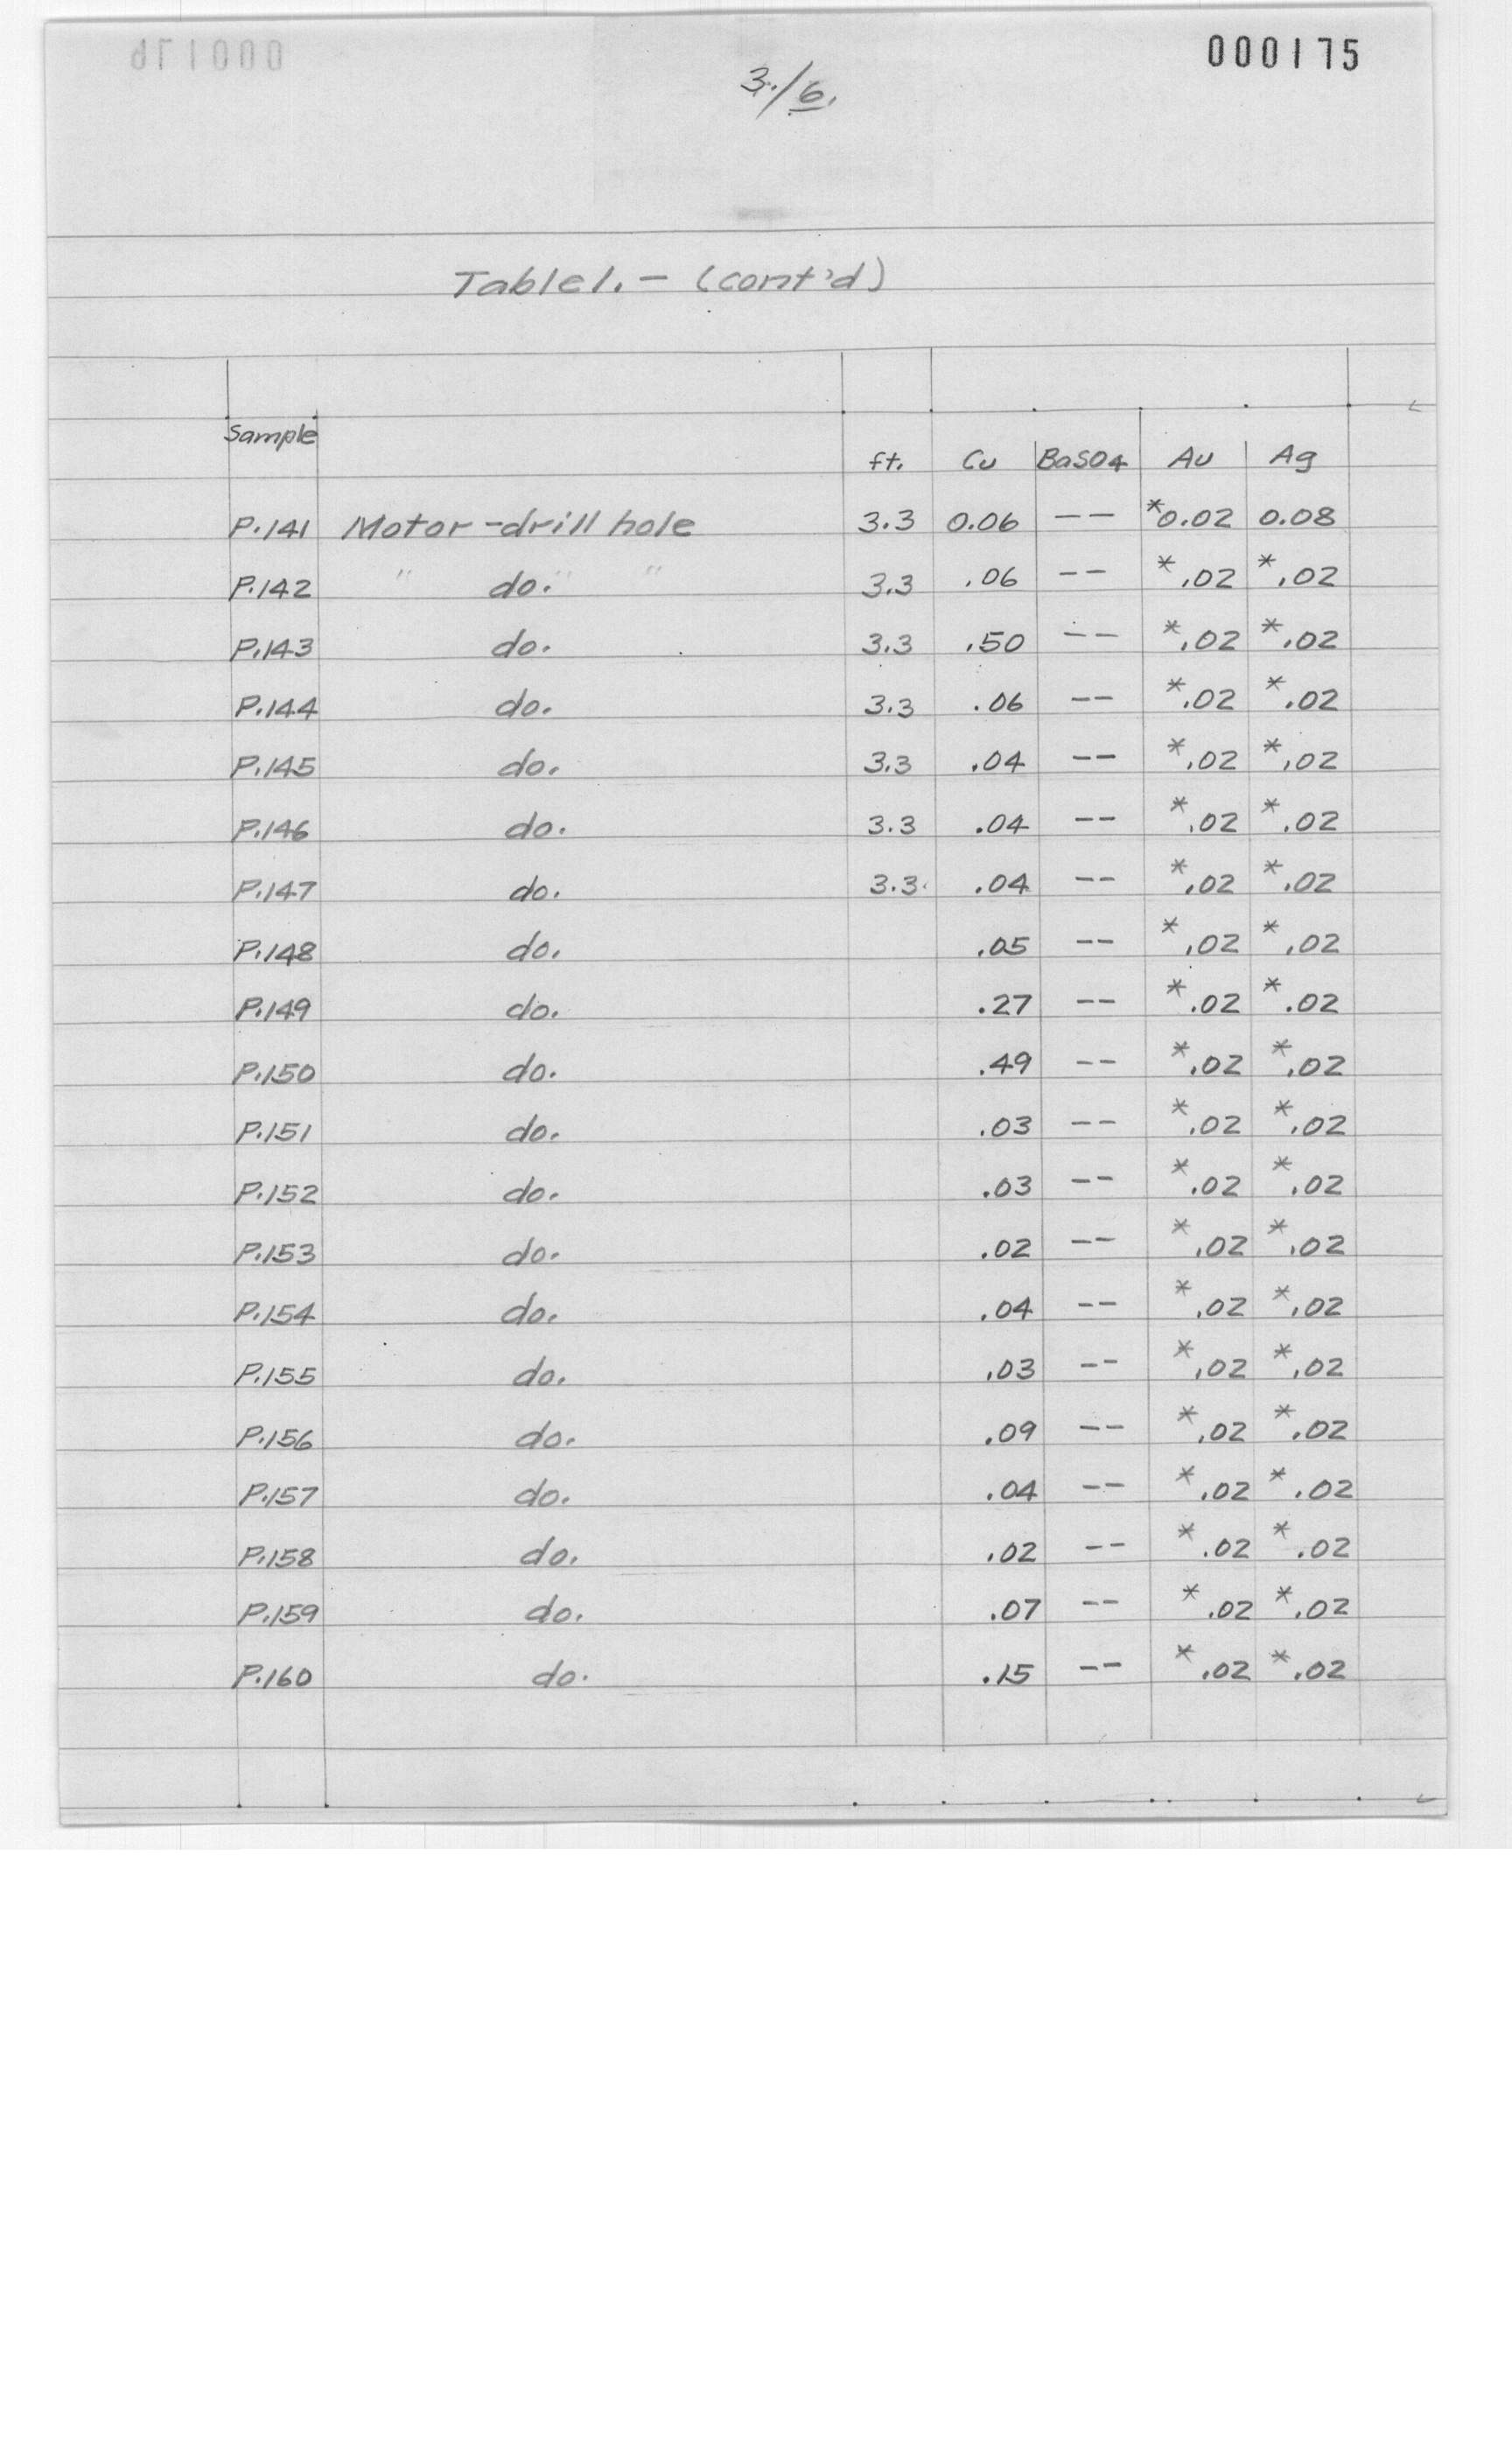 000175
3./6.
Table 1. - (cont'd)
Sample
ft. Cu BaSO4 Au Ag
P.141 Motor-drill hole 3.3 0.06 -- *0.02 0.08
P.142 " do. " " 3.3 .06 -- *.02 *.02
P.143 do. 3.3 .50 -- *.02 *.02
P.144 do. 3.3 .06 -- *.02 *.02
P.145 do. 3.3 .04 -- *.02 *.02
P.146 do. 3.3 .04 -- *.02 *.02
P.147 do. 3.3 .04 -- *.02 *.02
P.148 do. .05 -- *.02 *.02
P.149 do. .27 -- *.02 *.02
P.150 do. .49 -- *.02 *.02
P.151 do. .03 -- *.02 *.02
P.152 do. .03 -- *.02 *.02
P.153 do. .02 -- *.02 *.02
P.154 do. .04 -- *.02 *.02
P.155 do. .03 -- *.02 *.02
P.156 do. .09 -- *.02 *.02
P.157 do. .04 -- *.02 *.02
P.158 do. .02 -- *.02 *.02
P.159 do. .07 -- *.02 *.02
P.160 do. .15 -- *.02 *.02